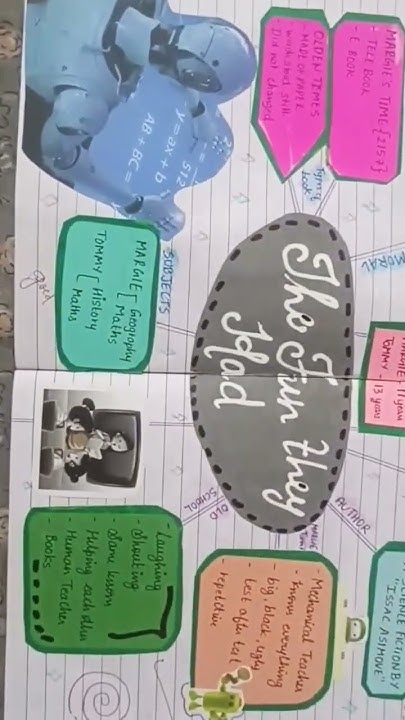 MARGIE'S TIME {2157}
- TELE BOOK
- E BOOK
OLDEN TIMES
- MADE OF PAPER
- words still
Did not changed
Types of
books
MORAL
MARGIE - 11 years
TOMMY - 13 years
SCIENCE FICTION BY
"ISSAC ASIMOVE"
AUTHOR
The Fun they
Had
- Mechanical Teacher
- know everything
- big, black, ugly
- test after test
- repetitive
OLD
SCHOOL
SUBJECTS
MARGIE [ Geography
Maths
TOMMY [ History
Maths
good
y=ax+b
AB+BC=
512
- Laughing
- Shouting
- Same lesson
- Helping each other
- Human Teacher
- Books